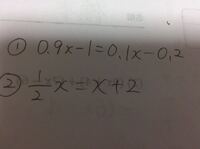 ① 0.9x-1=0.1x-0.2
② 1/2 x=x+2